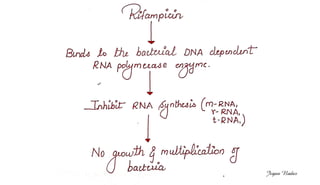 Rifampicin
Binds to the bacterial DNA dependent
RNA polymerase enzyme.
Inhibit RNA synthesis (m-RNA,
r-RNA,
t-RNA,)
No growth & multiplication of
bacteria